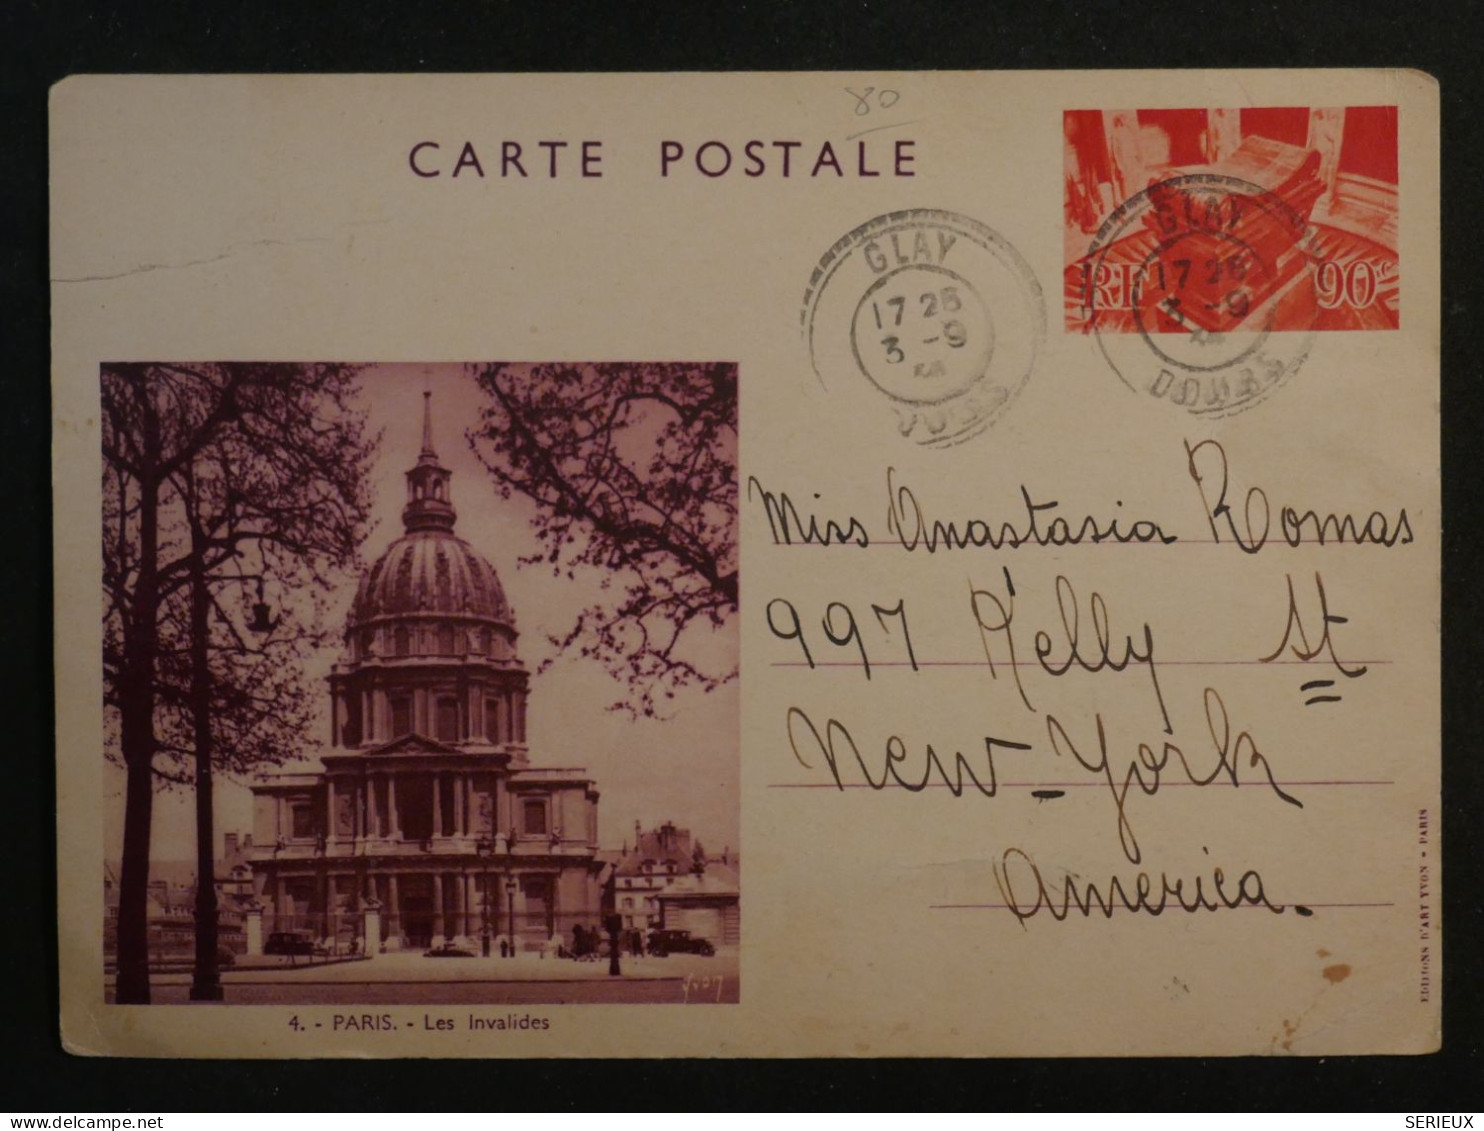 80
CARTE POSTALE
RF 90c
GLAY
17 25
3 -9
DOUBS
GLAY
17 25
3 -9
DOUBS
Miss Anastasia Romas
997 Kelly St
New-York
America.
Yvon
4. - PARIS. - Les Invalides
EDITIONS D'ART YVON • PARIS
SERIEUX